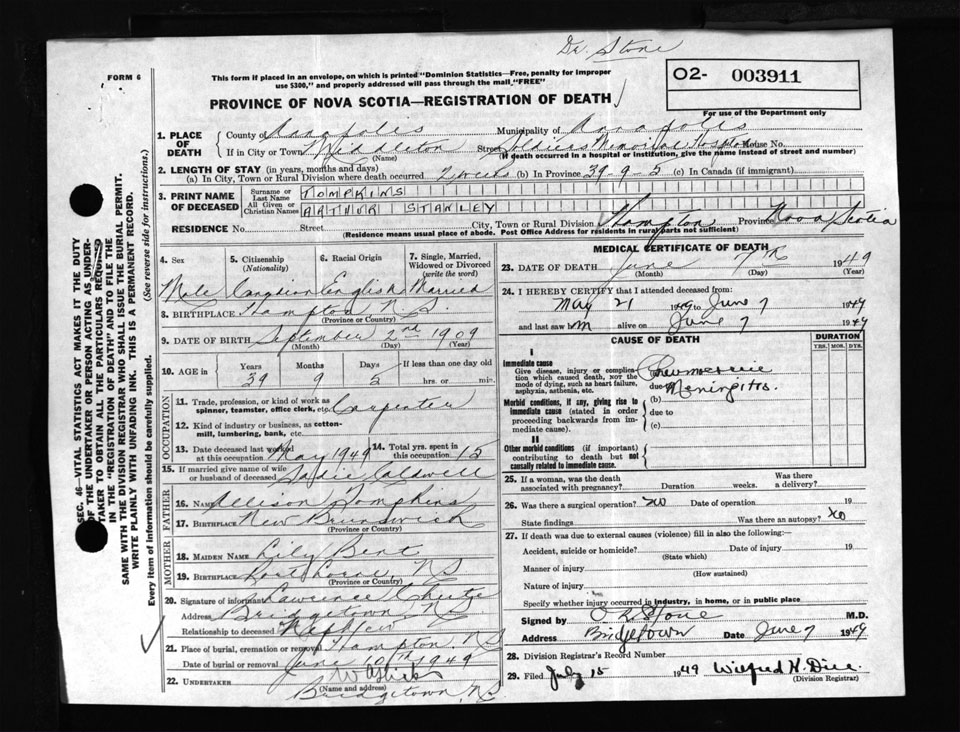 Dr. Stone
FORM 6
This form if placed in an envelope, on which is printed "Dominion Statistics—Free, penalty for improper
use $300," and properly addressed will pass through the mail "FREE"
02- 003911
For use of the Department only
PROVINCE OF NOVA SCOTIA—REGISTRATION OF DEATH
SEC. 46—VITAL STATISTICS ACT MAKES IT THE DUTY
OF THE UNDERTAKER OR PERSON ACTING AS UNDER-
TAKER TO OBTAIN ALL THE PARTICULARS REQUIRED
IN THE "REGISTRATION OF DEATH" AND TO FILE THE
SAME WITH THE DIVISION REGISTRAR WHO SHALL ISSUE THE BURIAL PERMIT.
WRITE PLAINLY WITH UNFADING INK. THIS IS A PERMANENT RECORD.
Every item of information should be carefully supplied. (See reverse side for instructions.)
1. PLACE OF DEATH
County of Annapolis Municipality of Annapolis
If in City or Town Middleton (Name) Street Soldiers Memorial Hospital House No.
(If death occurred in a hospital or institution, give the name instead of street and number)
2. LENGTH OF STAY (in years, months and days)
(a) In City, Town or Rural Division where death occurred 2 weeks (b) In Province 39-9-5 (c) In Canada (if immigrant)
3. PRINT NAME OF DECEASED
Surname or Last Name TOMPKINS
All Given or Christian Names ARTHUR STANLEY
RESIDENCE No. Street City, Town or Rural Division Hampton Province Nova Scotia
(Residence means usual place of abode. Post Office Address for residents in rural parts not sufficient)
4. Sex 5. Citizenship (Nationality) 6. Racial Origin 7. Single, Married, Widowed or Divorced (write the word)
Male Canadian English Married
8. BIRTHPLACE Hampton N.S.
(Province or Country)
9. DATE OF BIRTH September 2nd 1909
(Month) (Day) (Year)
10. AGE in Years Months Days If less than one day old
39 9 5 hrs. or min.
OCCUPATION
11. Trade, profession, or kind of work as spinner, teamster, office clerk, etc. Carpenter
12. Kind of industry or business, as cotton-mill, lumbering, bank, etc.
13. Date deceased last worked at this occupation May 1949 14. Total yrs. spent in this occupation 15
15. If married give name of wife or husband of deceased Sadie Caldwell
FATHER
16. Name Allison Tompkins
17. Birthplace New Brunswick
(Province or Country)
MOTHER
18. MAIDEN NAME Lily Bent
19. BIRTHPLACE Port Lorne NS
(Province or Country)
20. Signature of informant Lawrence Chute
Address Bridgetown NS
Relationship to deceased Nephew
21. Place of burial, cremation or removal Hampton NS
Date of burial or removal June 10th 1949
22. UNDERTAKER
(Name and address)
Bridgetown N.S.
MEDICAL CERTIFICATE OF DEATH
23. DATE OF DEATH June 7th 1949
(Month) (Day) (Year)
24. I HEREBY CERTIFY that I attended deceased from:
May 21 1949 to June 7 1949
and last saw him alive on June 7 1949
CAUSE OF DEATH DURATION
YRS. MOS. DYS.
I
Immediate cause
Give disease, injury or complication which caused death, not the mode of dying, such as heart failure, asphyxia, asthenia, etc.
Pneumococcic
Meningitis
due to
(b)
Morbid conditions, if any, giving rise to immediate cause (stated in order proceeding backwards from immediate cause).
due to
(c)
II
Other morbid conditions (if important) contributing to death but not causally related to immediate cause.
25. If a woman, was the death associated with pregnancy? Duration weeks. Was there a delivery?
26. Was there a surgical operation? no Date of operation 19
State findings Was there an autopsy? no
27. If death was due to external causes (violence) fill in also the following:
Accident, suicide or homicide? Date of injury 19
(State which)
Manner of injury
(How sustained)
Nature of injury
Specify whether injury occurred in industry, in home, or in public place
Signed by Stone M.D.
Address Bridgetown Date June 7 1949
28. Division Registrar's Record Number
29. Filed July 15 1949
(Division Registrar)